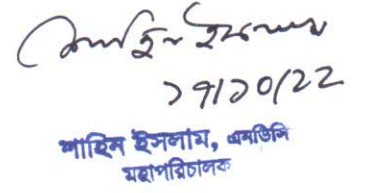 শাহিন ইসলাম
১৭/১০/২২
শাহিন ইসলাম, এনডিসি
মহাপরিচালক